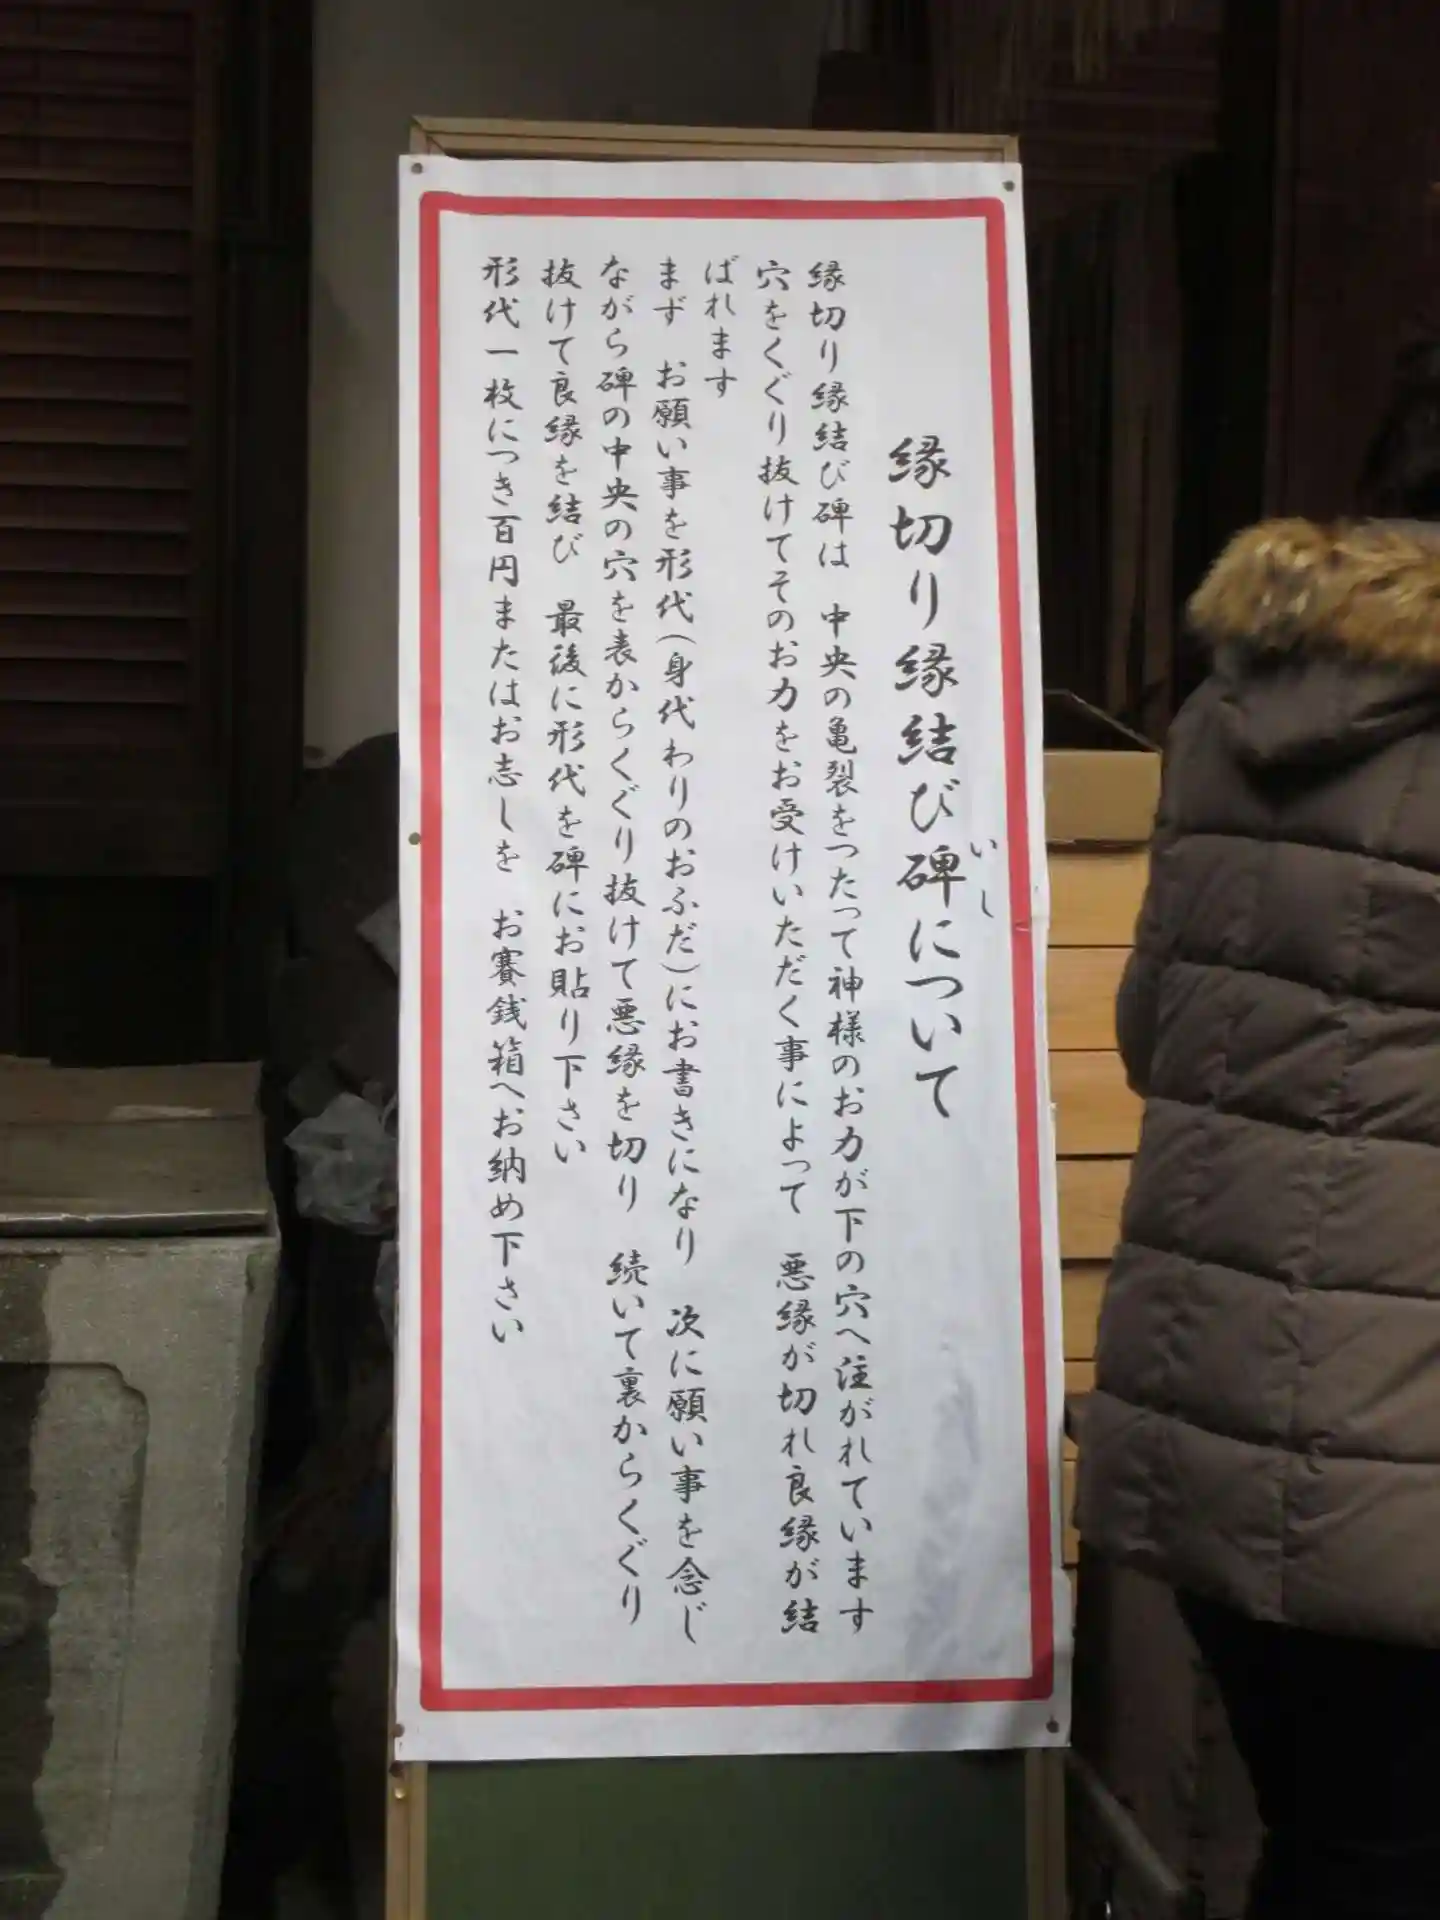 縁切り縁結び碑について
いし
縁切り縁結び碑は　中央の亀裂をつたって神様のお力が下の穴へ注がれています
穴をくぐり抜けてそのお力をお受けいただく事によって　悪縁が切れ良縁が結
ばれます
まず　お願い事を形代(身代わりのおふだ)にお書きになり　次に願い事を念じ
ながら碑の中央の穴を表からくぐり抜けて悪縁を切り　続いて裏からくぐり
抜けて良縁を結び　最後に形代を碑にお貼り下さい
形代一枚につき百円またはお志しを　お賽銭箱へお納め下さい